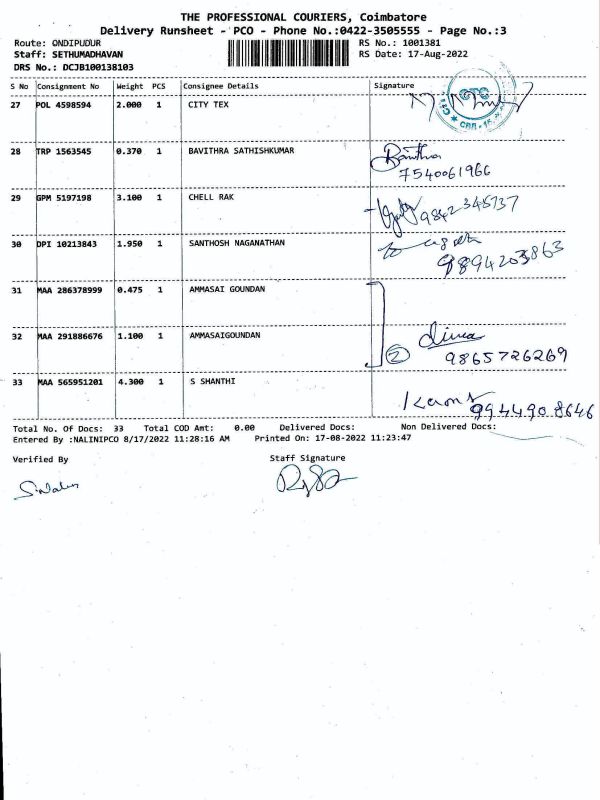 THE PROFESSIONAL COURIERS, Coimbatore
Delivery Runsheet - PCO - Phone No.:0422-3505555 - Page No.:3
Route: ONDIPUDUR RS No.: 1001381
Staff: SETHUMADHAVAN RS Date: 17-Aug-2022
DRS No.: DCJB100138103
S No Consignment No Weight PCS Consignee Details Signature
27 POL 4598594 2.000 1 CITY TEX
28 TRP 1563545 0.370 1 BAVITHRA SATHISHKUMAR
7540061966
29 GPM 5197198 3.100 1 CHELL RAK
9842345737
30 DPI 10213843 1.950 1 SANTHOSH NAGANATHAN
9894203863
31 MAA 286378999 0.475 1 AMMASAI GOUNDAN
32 MAA 291886676 1.100 1 AMMASAIGOUNDAN
2 9865726269
33 MAA 565951201 4.300 1 S SHANTHI
9944908646
Total No. Of Docs: 33 Total COD Amt: 0.00 Delivered Docs: Non Delivered Docs:
Entered By :NALINIPCO 8/17/2022 11:28:16 AM Printed On: 17-08-2022 11:23:47
Verified By Staff Signature